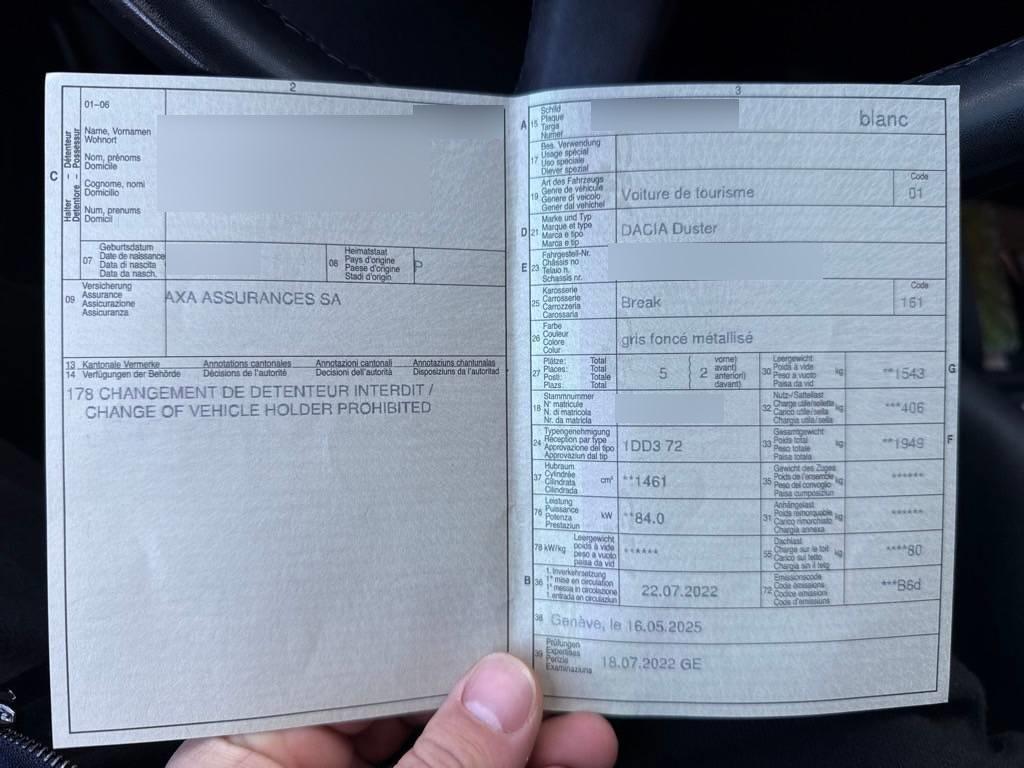 2
01–06
C
Halter – Détenteur
Detentore – Possessur
Name, Vornamen
Wohnort
Nom, prénoms
Domicile
Cognome, nomi
Domicilio
Num, prenums
Domicil
07
Geburtsdatum
Date de naissance
Data di nascita
Data da nasch.
08
Heimatstaat
Pays d'origine
Paese d'origine
Stadi d'origin
P
09
Versicherung
Assurance
Assicurazione
Assicuranza
AXA ASSURANCES SA
13 Kantonale Vermerke Annotations cantonales Annotazioni cantonali Annotaziuns chantunalas
14 Verfügungen der Behörde Décisions de l'autorité Decisioni dell'autorità Disposiziuns da l'autoritad
178 CHANGEMENT DE DETENTEUR INTERDIT /
CHANGE OF VEHICLE HOLDER PROHIBITED
3
A 15
Schild
Plaque
Targa
Numer
blanc
17
Bes. Verwendung
Usage spécial
Uso speciale
Diever spezial
19
Art des Fahrzeugs
Genre de véhicule
Genere di veicolo
Gener dal vehichel
Voiture de tourisme
Code
01
D 21
Marke und Typ
Marque et type
Marca e tipo
Marca e tip
DACIA Duster
E 23
Fahrgestell-Nr.
Châssis no
Telaio n.
Schassis nr.
25
Karosserie
Carrosserie
Carrozzeria
Carossaria
Break
Code
161
26
Farbe
Couleur
Colore
Colur
gris foncé métallisé
27
Plätze: Total
Places: Total
Posti: Totale
Plazs: Total
5
2
vorne)
avant)
anteriori)
davant)
30
Leergewicht
Poids à vide
Peso a vuoto
Paisa da vid
kg
**1543
G
18
Stammnummer
N° matricule
N. di matricola
Nr. da matricla
32
Nutz-/Sattellast
Charge utile/sellette
Carico utile/sella
Chargia utila/sella
kg
***406
24
Typengenehmigung
Réception par type
Approvazione del tipo
Approvaziun dal tip
1DD3 72
33
Gesamtgewicht
Poids total
Peso totale
Paisa totala
kg
**1949
F
37
Hubraum
Cylindrée
Cilindrata
Cilindrada
cm³
**1461
35
Gewicht des Zuges
Poids de l'ensemble
Peso del convoglio
Paisa cumposiziun
kg
******
76
Leistung
Puissance
Potenza
Prestaziun
kW
**84.0
31
Anhängelast
Poids remorquable
Carico rimorchiato
Chargia annexa
kg
******
78 kW/kg
Leergewicht
poids à vide
peso a vuoto
paisa da vid
******
55
Dachlast
Charge sur le toit
Carico sul tetto
Chargia sin il tetg
kg
****80
B 36
1. Inverkehrsetzung
1re mise en circulation
1a messa in circolazione
1. entrada en circulaziun
22.07.2022
72
Emissionscode
Code émissions
Codice emissioni
Code d'emissiuns
***B6d
38 Genève, le 16.05.2025
39
Prüfungen
Expertises
Perizie
Examinaziuns
18.07.2022 GE